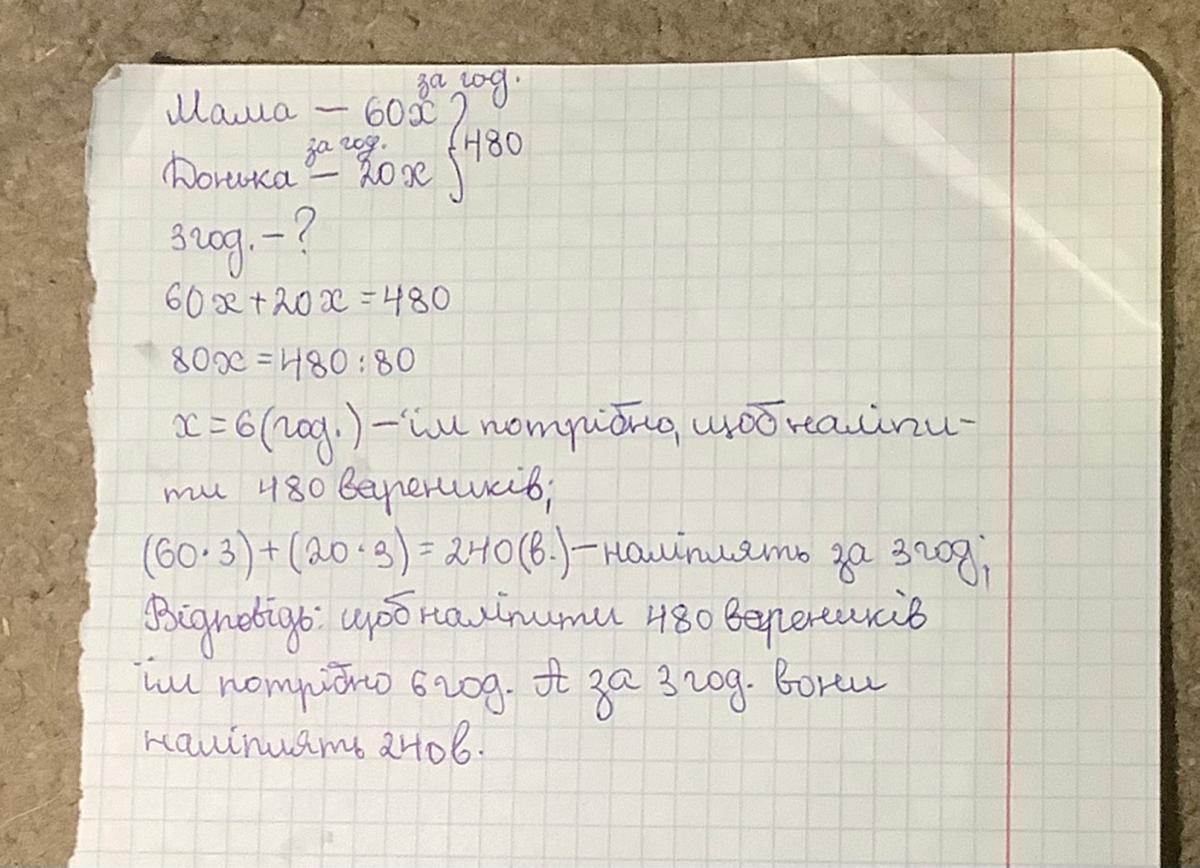 за год.
Мама — 60х
за год.
Донька — 20х } 480
3 год. - ?
60х + 20х = 480
80х = 480 : 80
х = 6 (год.) - їм потрібно, щоб наліпи-
ти 480 вареників;
(60 · 3) + (20 · 3) = 240 (в.) - наліплять за 3 год;
Відповідь: щоб наліпити 480 вареників
їм потрібно 6 год. А за 3 год. вони
наліплять 240 в.